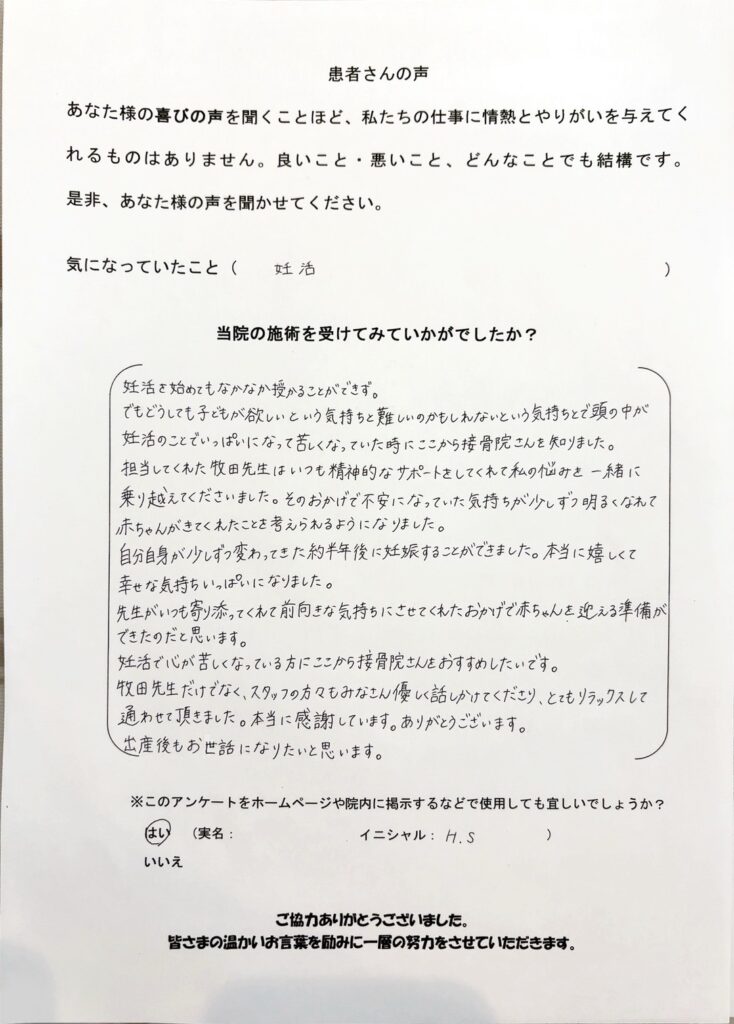 患者さんの声
あなた様の喜びの声を聞くことほど、私たちの仕事に情熱とやりがいを与えてく
れるものはありません。良いこと・悪いこと、どんなことでも結構です。
是非、あなた様の声を聞かせてください。
気になっていたこと（ 妊活 ）
当院の施術を受けてみていかがでしたか？
妊活を始めてもなかなか授かることができず。
でもどうしても子どもが欲しいという気持ちと難しいのかもしれないという気持ちとで頭の中が
妊活のことでいっぱいになって苦しくなっていた時にここから接骨院さんを知りました。
担当してくれた牧田先生はいつも精神的なサポートをしてくれて私の悩みを一緒に
乗り越えてくださいました。そのおかげで不安になっていた気持ちが少しずつ明るくなれて
赤ちゃんがきてくれたことを考えられるようになりました。
自分自身が少しずつ変わってきた約半年後に妊娠することができました。本当に嬉しくて
幸せな気持ちいっぱいになりました。
先生がいつも寄り添ってくれて前向きな気持ちにさせてくれたおかげで赤ちゃんを迎える準備が
できたのだと思います。
妊活で心が苦しくなっている方にここから接骨院さんをおすすめしたいです。
牧田先生だけでなく、スタッフの方々もみなさん優しく話しかけてくださり、とてもリラックスして
通わせて頂きました。本当に感謝しています。ありがとうございます。
出産後もお世話になりたいと思います。
※このアンケートをホームページや院内に掲示するなどで使用しても宜しいでしょうか？
はい （実名： イニシャル： H.S ）
いいえ
ご協力ありがとうございました。
皆さまの温かいお言葉を励みに一層の努力をさせていただきます。